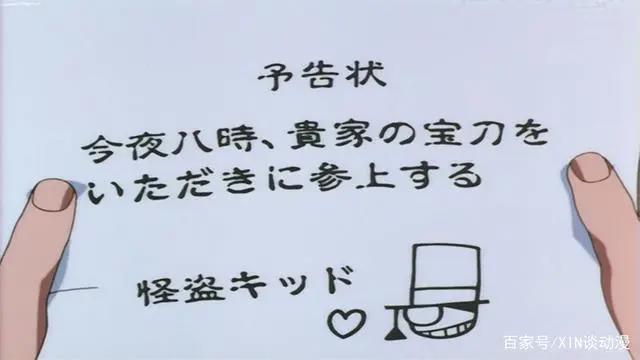 予告状
今夜八時、貴家の宝刀を
いただきに参上する
怪盗キッド
百家号/XIN谈动漫